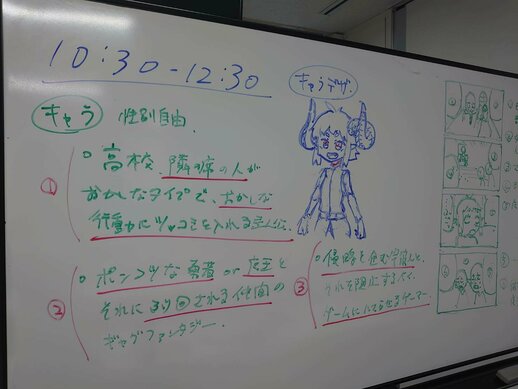 10:30-12:30
キャラ 性別自由.
① 高校 隣席の人が
おかしなタイプで、おかしな
行動にツッコミを入れる主人公.
② ポンコツな勇者 or 魔王と
それにふり回される仲間の
ギャグファンタジー.
キャラデザ.
③ 侵略を企む宇宙人と、
それを阻止するべく
ゲーマー.